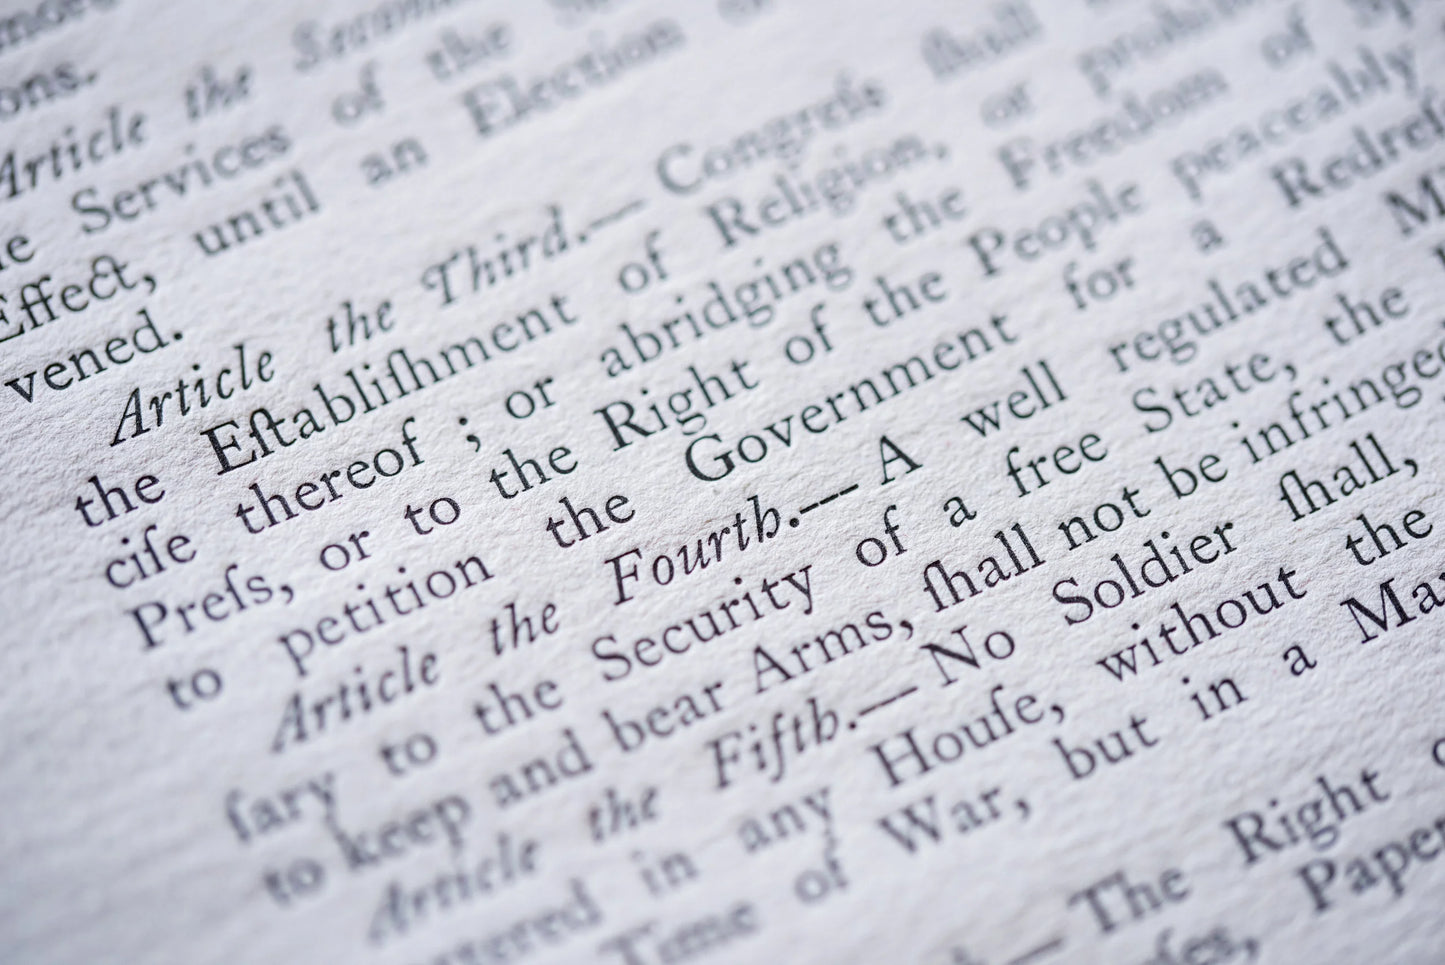 ons.
Article the Second
e Services of the
Effect, until an Election
vened.
Article the Third.—Congreſs ſhall
the Eſtabliſhment of Religion, or prohibi
ciſe thereof ; or abridging the Freedom of Sp
Preſs, or to the Right of the People peaceably
to petition the Government for a Redreſs
Article the Fourth.—A well regulated M
ſary to the Security of a free State, the
to keep and bear Arms, ſhall not be infringed
Article the Fifth.—No Soldier ſhall,
tered in any Houſe, without the
Time of War, but in a Ma
—The Right
ſes, Paper